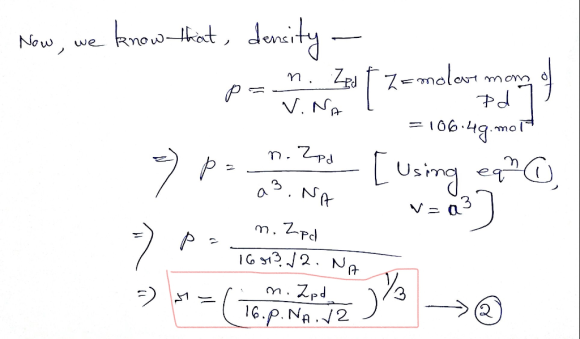 Now, we know that, density —
ρ = n. Z_Pd / V. N_A [Z = molar mass of Pd = 106.4g.mol⁻¹]
⇒ ρ = n. Z_Pd / a³. N_A [Using eqⁿ ①, V = a³]
⇒ ρ = n. Z_Pd / 16 r³. √2. N_A
⇒ r = (n. Z_Pd / 16. ρ. N_A. √2)^1/3 → ②